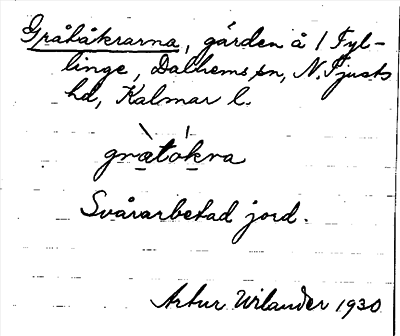 Gråtåkrarna, gården å 1 Fyl-
linge, Dalhems sn, N. Tjusts
hd, Kalmar l.
grætokra
Svårarbetad jord.
Artur Wilander 1930